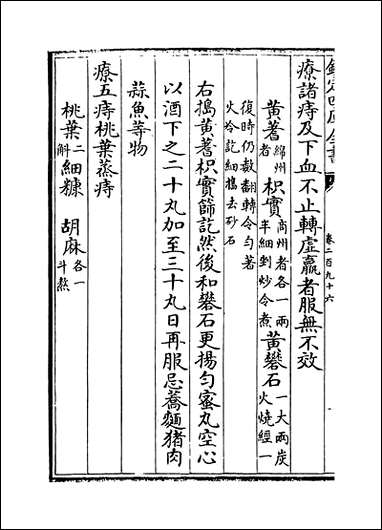 欽定四庫全書
卷二百九十六
療諸痔及下血不止轉虛羸者服無不效
黃蓍綿州者 枳實商州者各一兩半細剉炒令煮 黃礬石一大兩炭火燒經一
復時仍數翻轉令勻著火冷訖細搗去砂石
右搗黃蓍枳實篩訖然後和礬石更揚勻蜜丸空心
以酒下之二十丸加至三十丸日再服忌蕎麵猪肉
蒜魚等物
療五痔桃葉蒸痔
桃葉二斛 細糠 胡麻各一斗熬